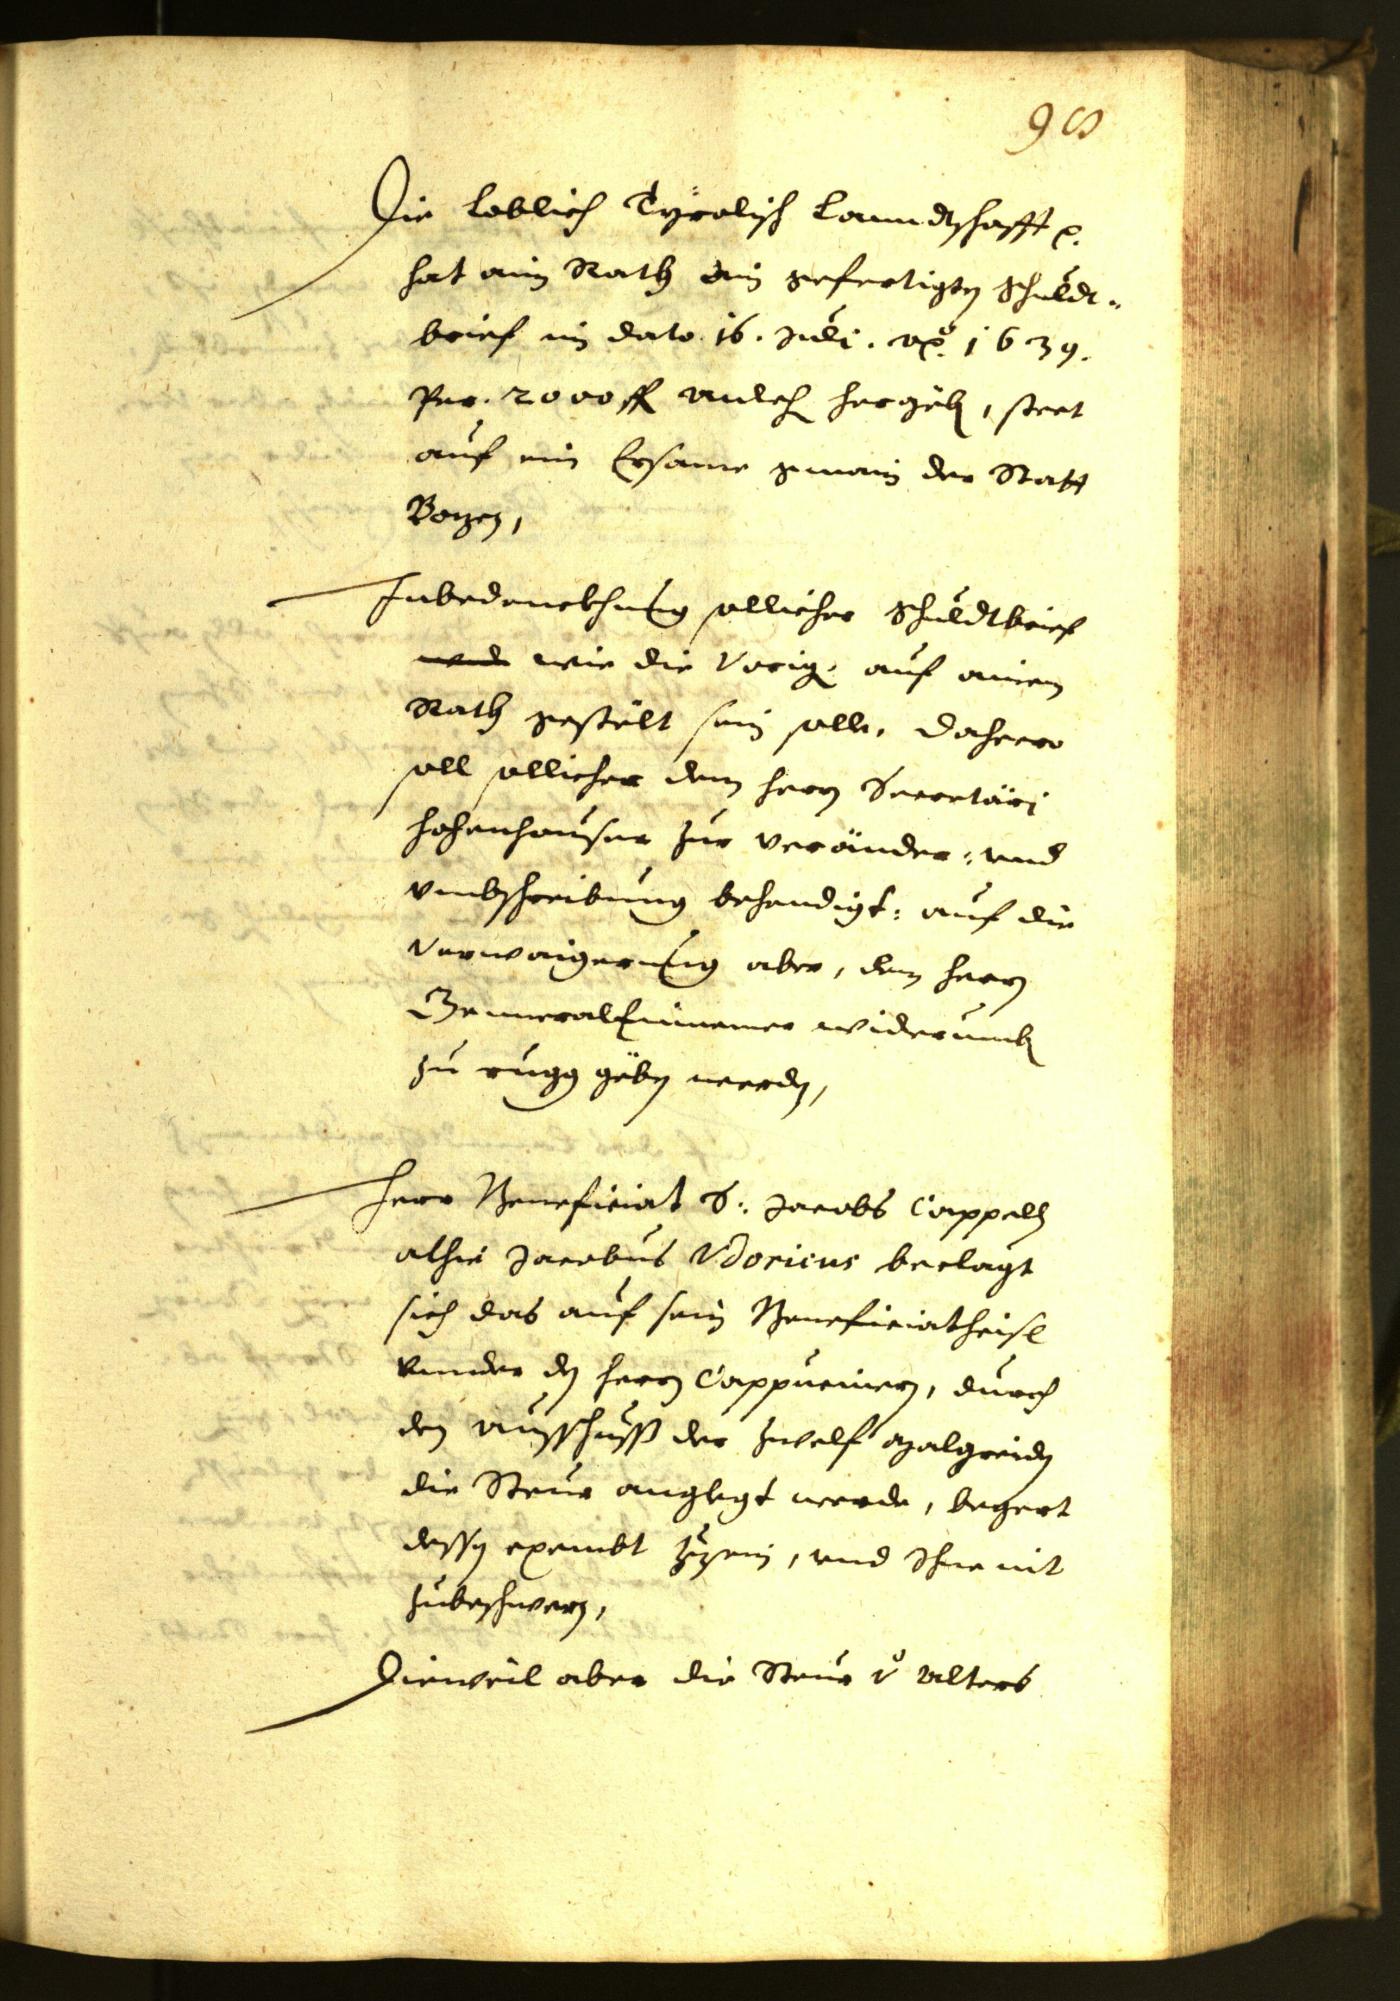 98
Die loblich Tyrolisch Lanndtschafft p.
hat ain Rath ain gefertigten Schuldt-
brief in dato 16. Juli. ao. 1639.
Per. 2000 fl anlech hergeben, steet
auf ein Ersame gmain der Statt
Bozen,
In bedenckhung sollicher Schuldtbrief
und wie die Vorig. auf ainem
Rath gestelt sein solle, dahero
soll sollicher dem herrn Secretäri
hohenhauser zur veränder: und
umbschreibung behendigt: auf die
Verwaigerung aber, dem herrn
General Einnemer widerumb
zu rugg geben werden,
Herr Beneficiat S: Jacobs Cappelln
alhie Jacobus Vdoricus beclagt
sich das auf sein Beneficiatheisl
vnnder den herrn Cappucinern, durch
den ausschuss der zwelf Malgreiden
die Steur anglegt werde, begert
dessen exembt zu sein, und Ihne nit
zubeschwern,
Dieweil aber die Steur v. Alters